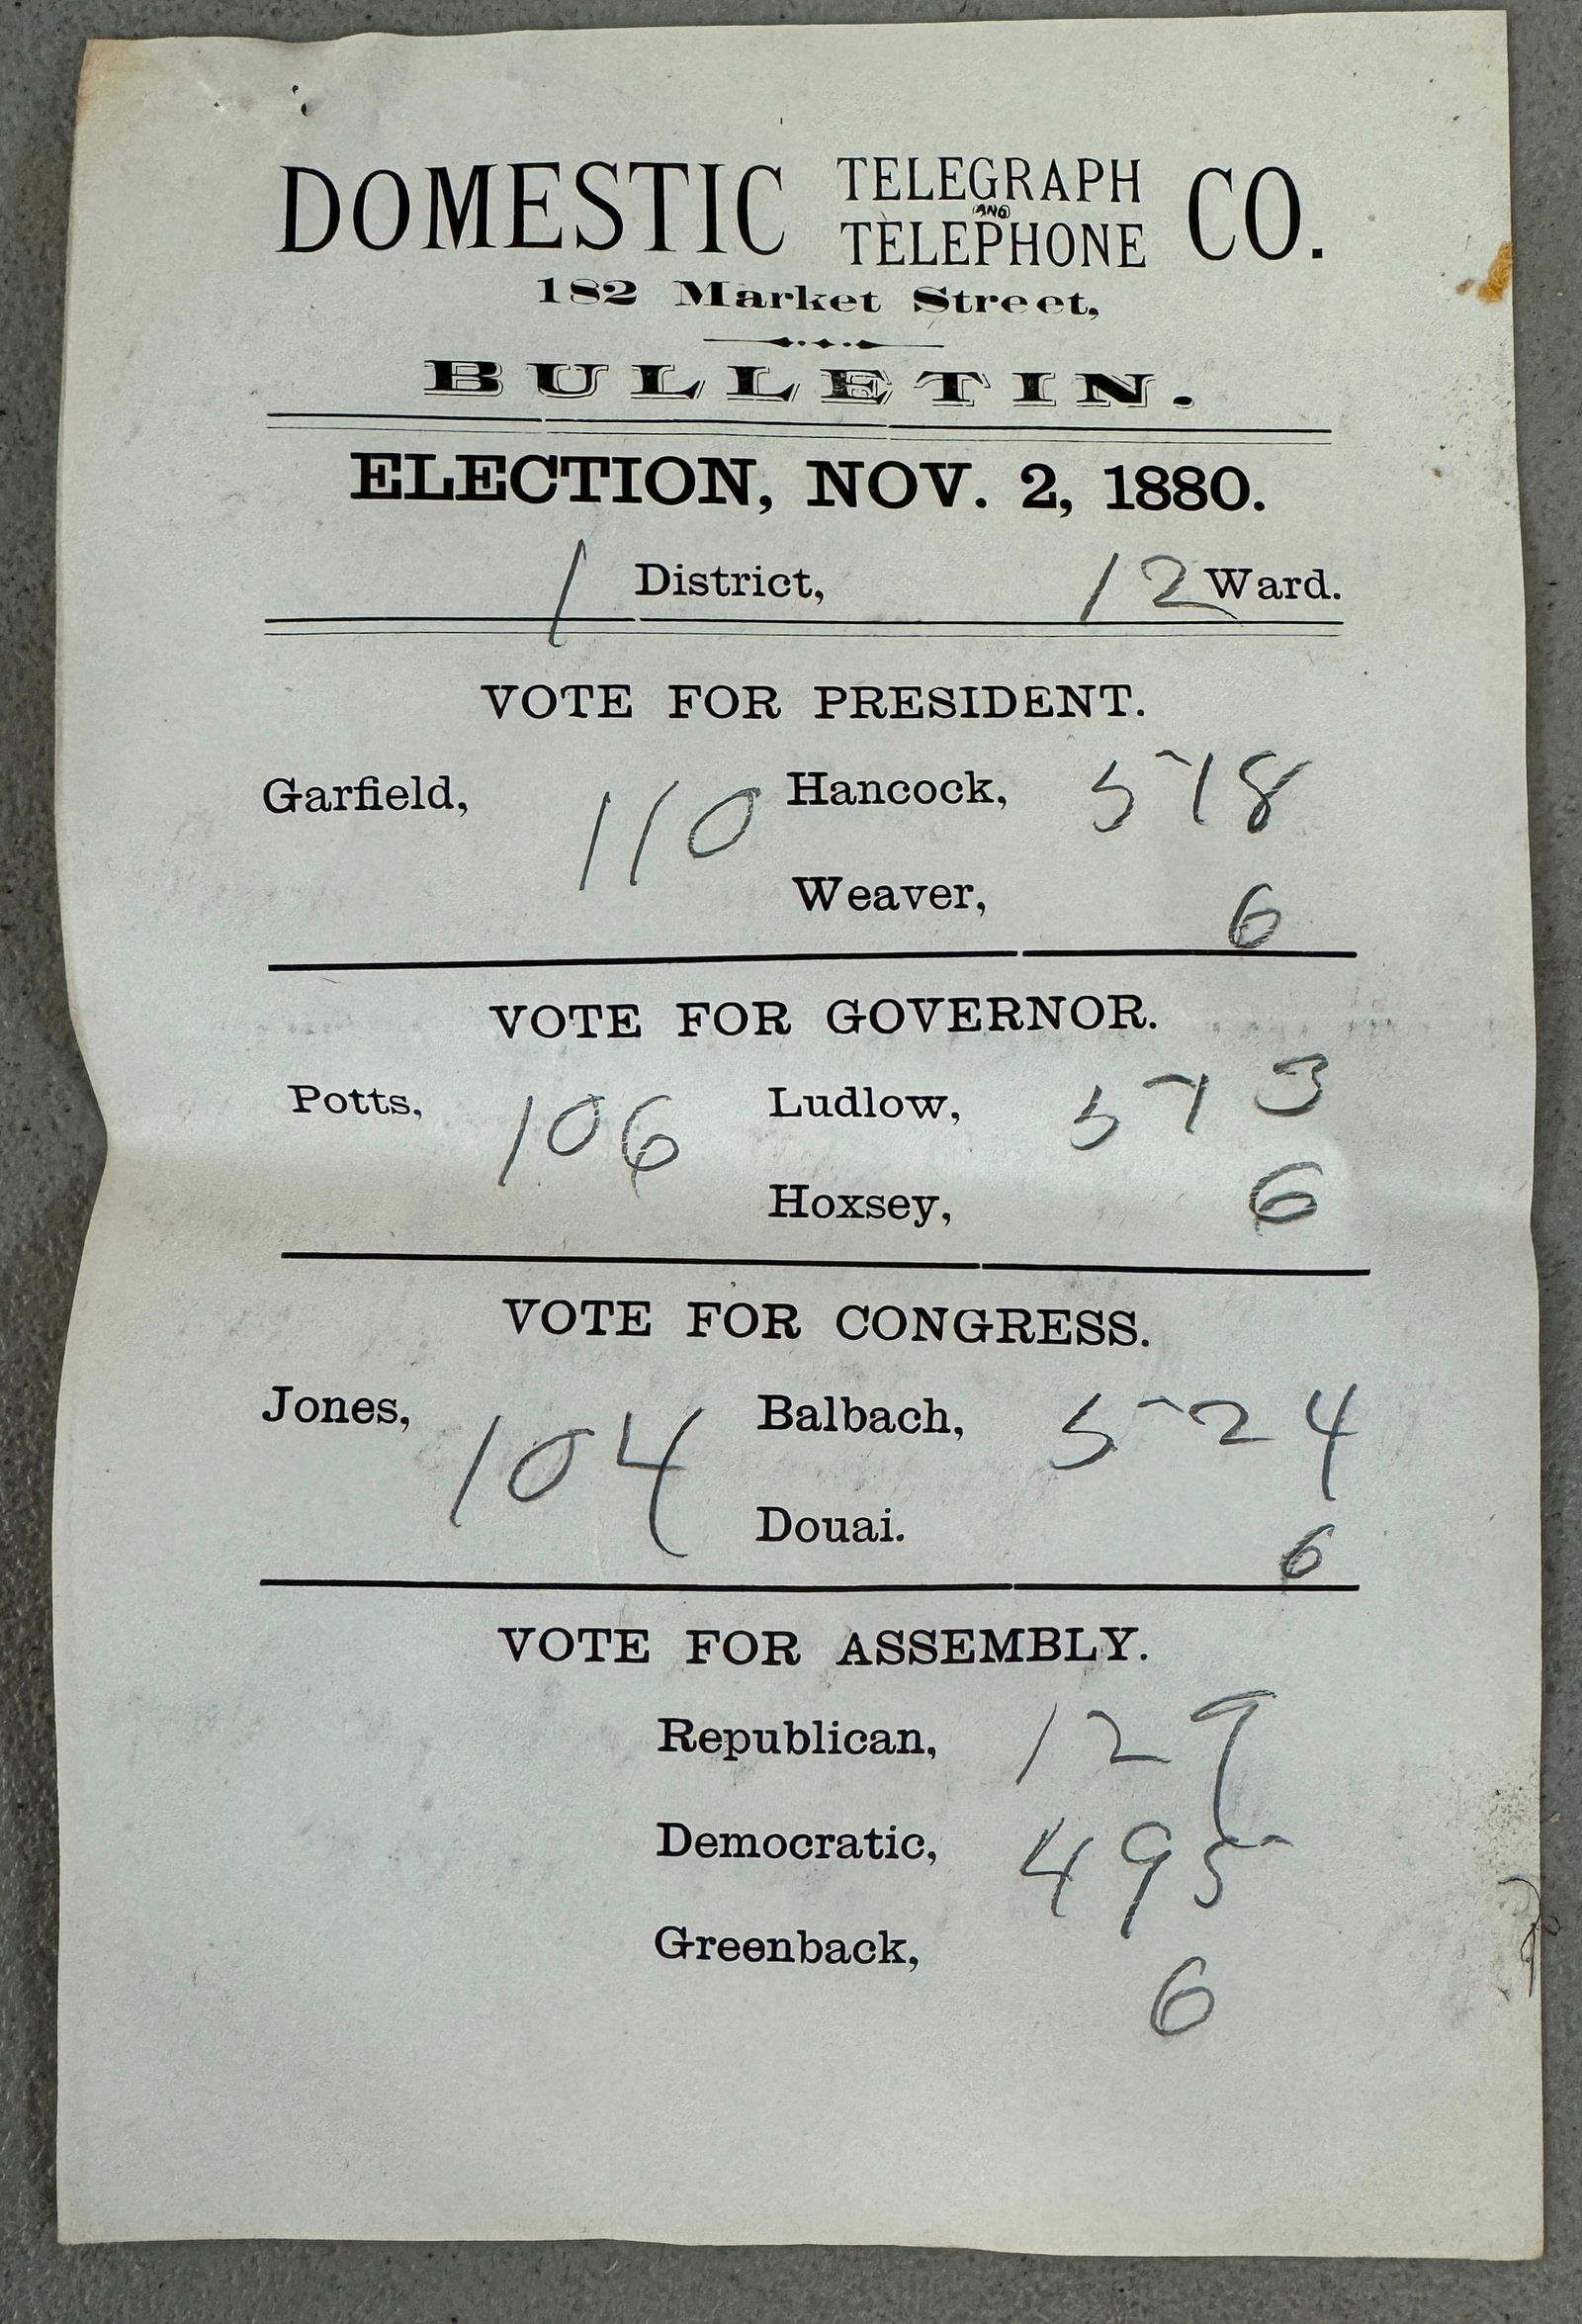 DOMESTIC TELEGRAPH AND TELEPHONE CO.
182 Market Street,
BULLETIN.
ELECTION, NOV. 2, 1880.
1 District, 12 Ward.
VOTE FOR PRESIDENT.
Garfield, 110 Hancock, 518
Weaver, 6
VOTE FOR GOVERNOR.
Potts, 106 Ludlow, 513
Hoxsey, 6
VOTE FOR CONGRESS.
Jones, 104 Balbach, 524
Douai. 6
VOTE FOR ASSEMBLY.
Republican, 129
Democratic, 495
Greenback, 6